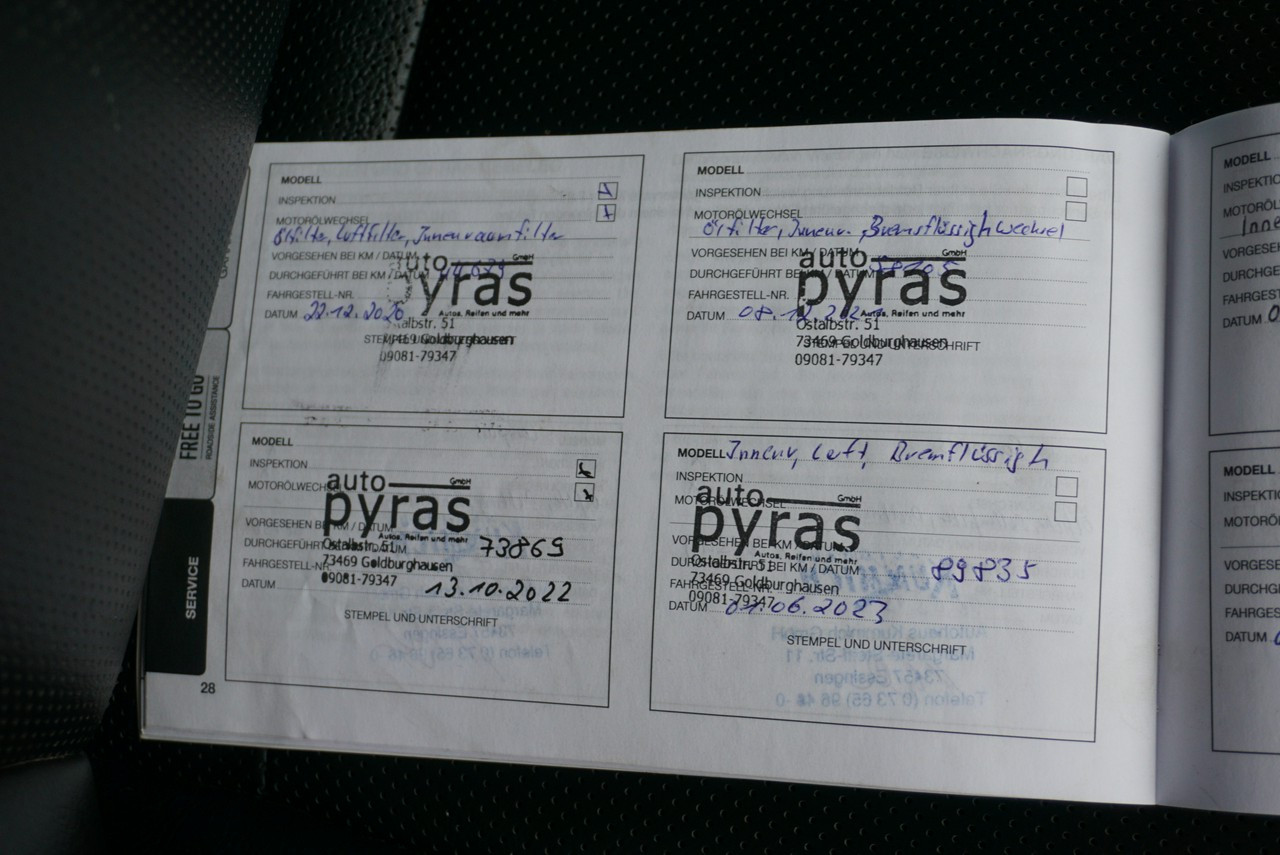 MODELL
INSPEKTION
MOTORÖLWECHSEL
Ölfilter, Luftfilter, Innenraumfilter
VORGESEHEN BEI KM / DATUM
DURCHGEFÜHRT BEI KM / DATUM
FAHRGESTELL-NR.
DATUM 22.12.2020
auto GmbH
pyras
Autos, Reifen und mehr
Ostalbstr. 51
73469 Goldburghausen
09081-79347
MODELL
INSPEKTION
MOTORÖLWECHSEL
Ölfilter, Innenr. Bremsflüssigh wechsel
VORGESEHEN BEI KM / DATUM
DURCHGEFÜHRT BEI KM / DATUM
FAHRGESTELL-NR.
DATUM 08.12.
auto GmbH
pyras
Autos, Reifen und mehr
Ostalbstr. 51
73469 Goldburghausen
STEMPEL UND UNTERSCHRIFT
09081-79347
MODELL
INSPEKTION
MOTORÖLWECHSEL
VORGESEHEN BEI KM / DATUM
DURCHGEFÜHRT BEI KM / DATUM 73869
FAHRGESTELL-NR.
DATUM 13.10.2022
auto GmbH
pyras
Autos, Reifen und mehr
Ostalbstr. 51
73469 Goldburghausen
09081-79347
STEMPEL UND UNTERSCHRIFT
MODELL Innenr, Luft, Bremflüssigh
INSPEKTION
MOTORÖLWECHSEL
VORGESEHEN BEI KM / DATUM
DURCHGEFÜHRT BEI KM / DATUM 89835
FAHRGESTELL-NR.
DATUM 06.2023
auto GmbH
pyras
Autos, Reifen und mehr
Ostalbstr. 51
73469 Goldburghausen
09081-79347
STEMPEL UND UNTERSCHRIFT
28
FREE TO GO
ROADSIDE ASSISTANCE
SERVICE
MODELL
INSPEKTIO
MOTORÖL
Inne
VORGESEH
DURCHGE
FAHRGEST
DATUM
MODELL
INSPEKTI
MOTORÖL
VORGESE
DURCHG
FAHRGES
DATUM